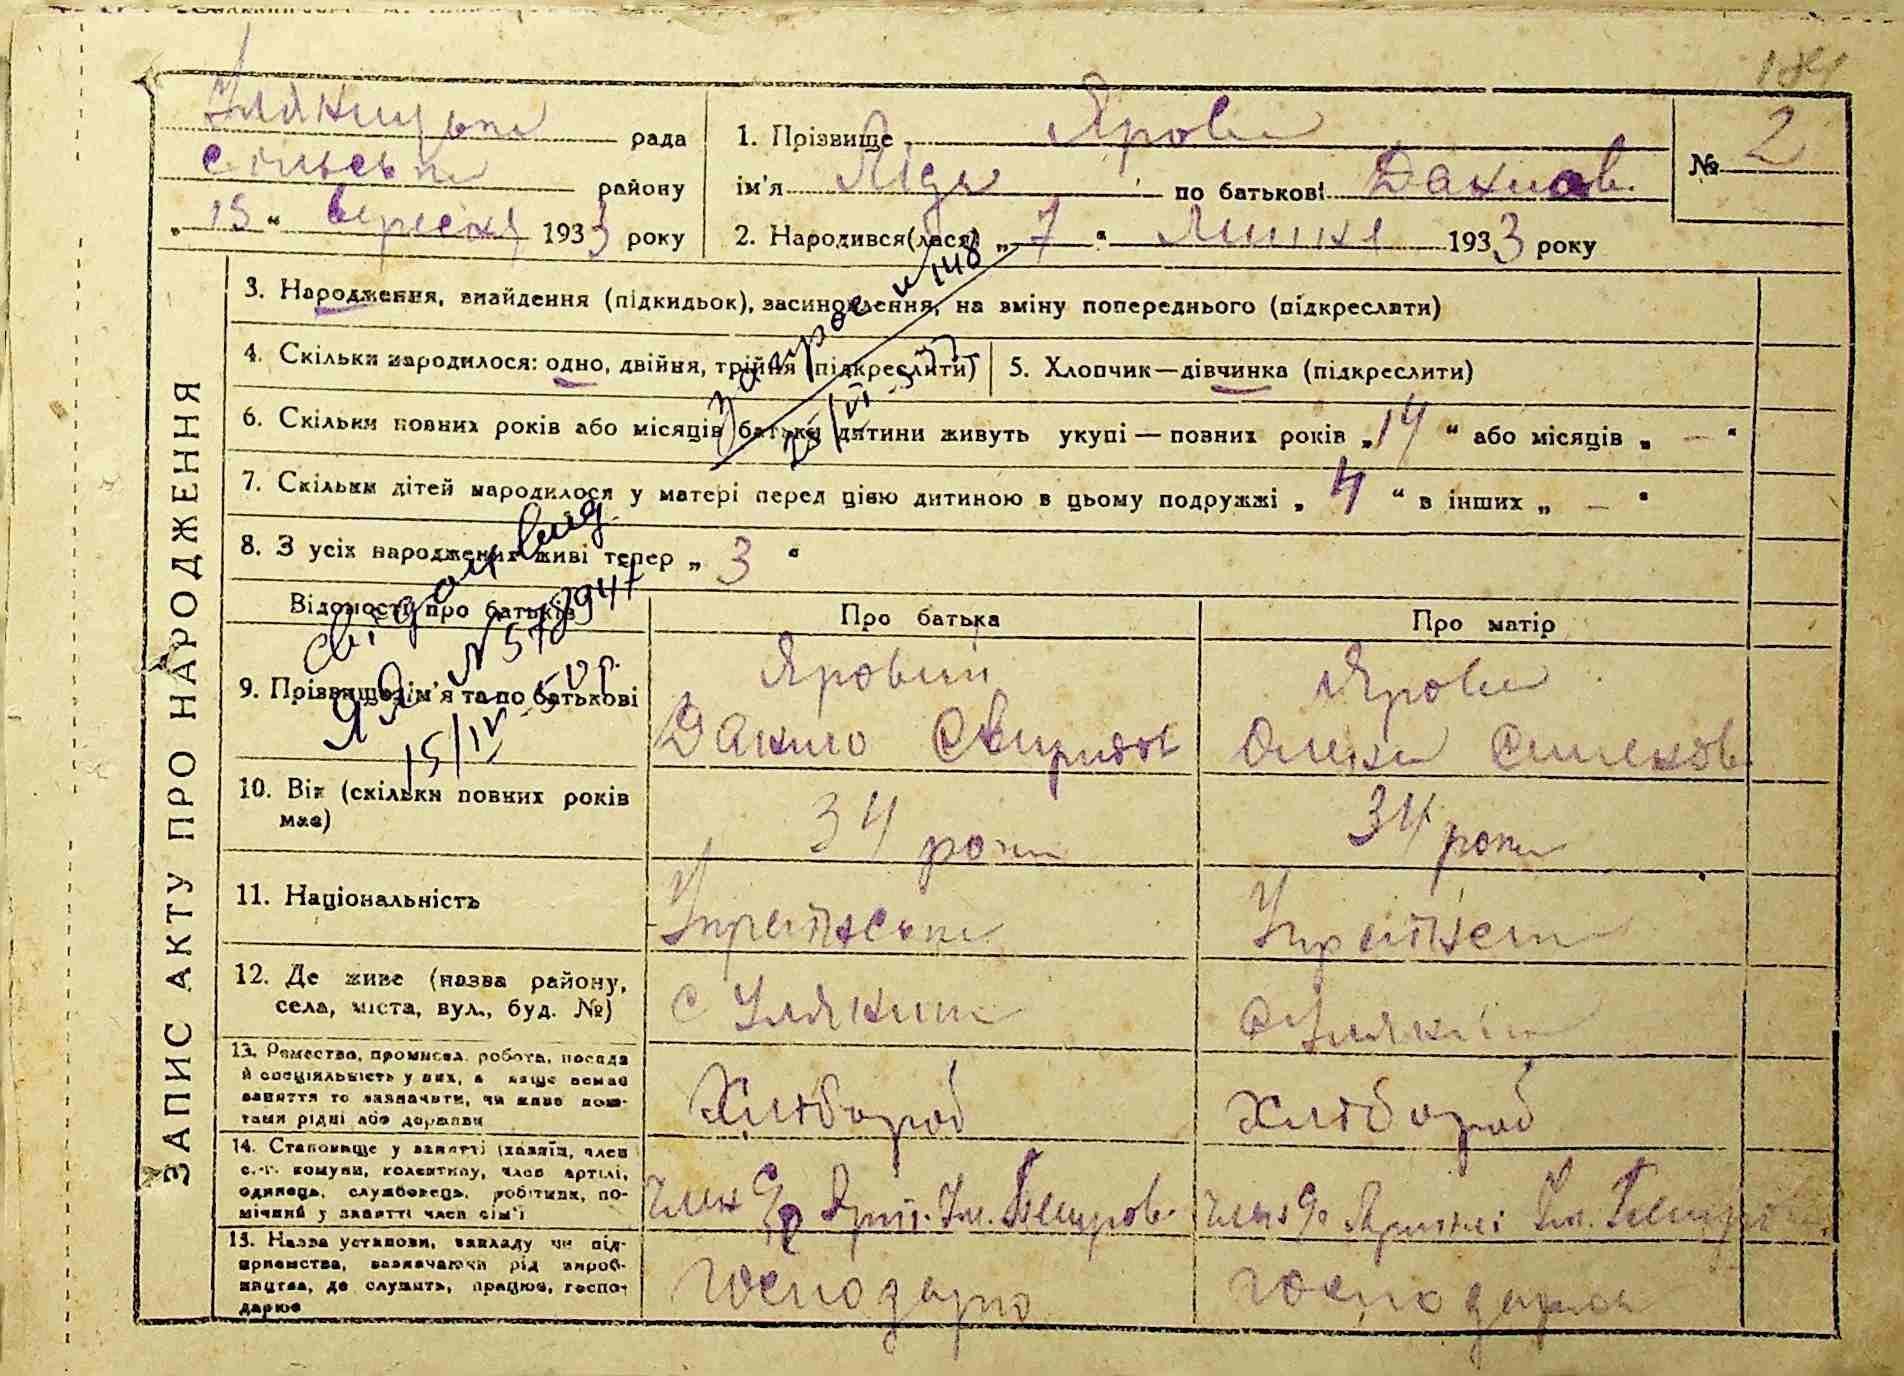 184
Улякицька рада
сільська району
„ 15 “ вересня 1933 року
1. Прізвище Ярова
ім'я Ліда по батькові Данилов.
2. Народився(лася) „ 7 “ Липня 1933 року
№ 2
ЗАПИС АКТУ ПРО НАРОДЖЕННЯ
3. Народження, знайдення (підкидьок), засиновлення, на зміну попереднього (підкреслити)
4. Скільки народилося: одно, двійня, трійня (підкреслити)
5. Хлопчик—дівчинка (підкреслити)
6. Скільки повних років або місяців батьки дитини живуть укупі — повних років „ 14 “ або місяців „ — “
7. Скільки дітей народилося у матері перед цією дитиною в цьому подружжі „ 4 “ в інших „ — “
8. З усіх народжених живі тепер „ 3 “
Відомості про батьків
Про батька
Про матір
9. Прізвище, ім'я та по батькові
Яровий
Данило Свиридов
Ярова
Олена Семенов.
Свідоцтво вид.
ЯЛ № 578941
15/IV-50 р.
10. Вік (скільки повних років
має)
34 роки
34 роки
11. Національність
Українська
Українська
12. Де живе (назва району,
села, міста, вул., буд. №)
13. Ремество, промисел, робота, посада
й спеціяльність у них, а якщо немає
заняття то зазначити, чи живе кош-
тами рідні або держави
Хлібороб
Хлібороб
14. Становище у занятті (хазяїн, член
с.-г. комуни, колективу, член артілі,
одинець, службовець, робітник, по-
мічний у занятті член сім'ї
член Ім.
член Артілі Ім.
15. Назва установи, закладу чи під-
приємства, зазначаючи рід вироб-
ництва, де служить, працює, госпо-
дарює